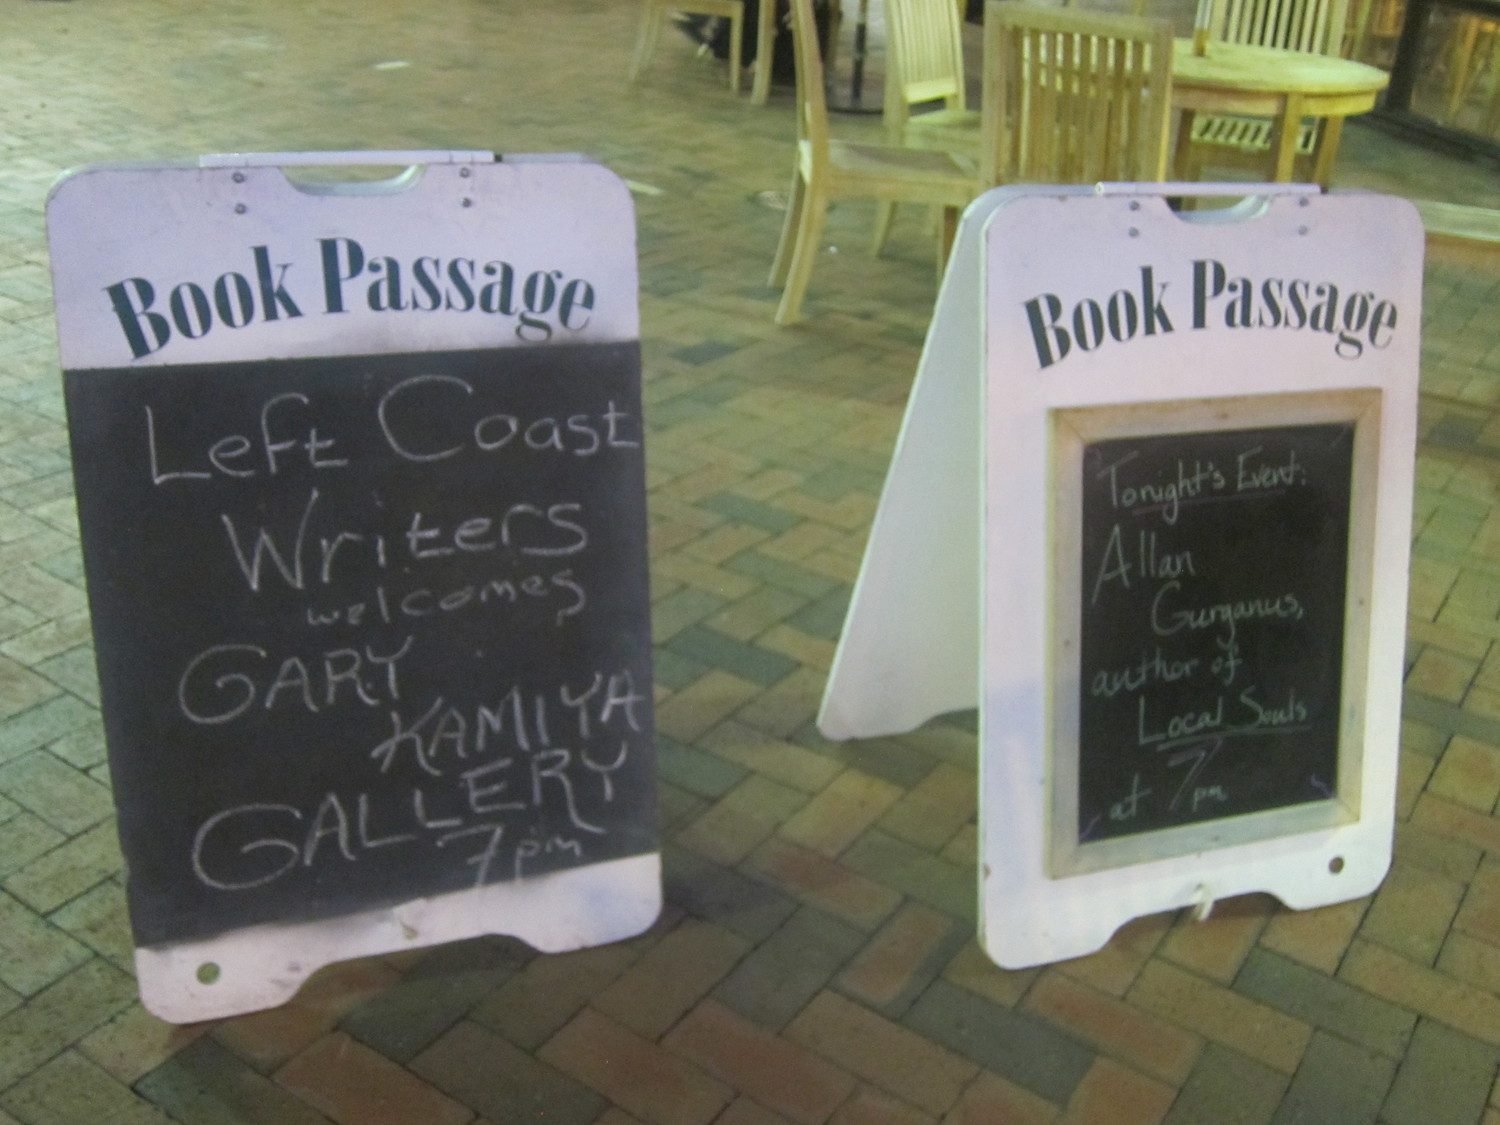 Book Passage
Left Coast
Writers
welcomes
GARY
KAMIYA
GALLERY
7pm
Book Passage
Tonight's Event:
Allan
Gurganus,
author of
Local Souls
at 7pm